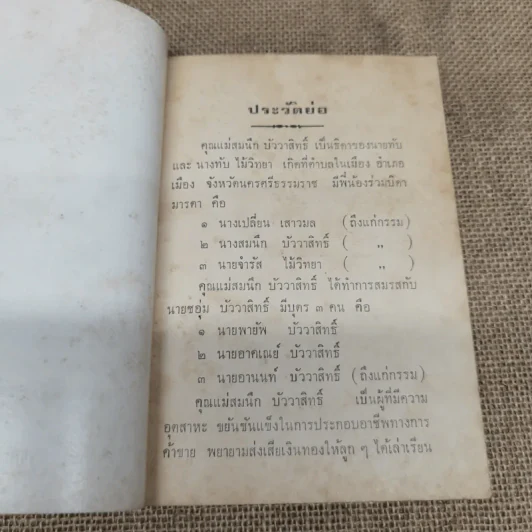 ประวัติย่อ
คุณแม่สมนึก บัววาสิทธิ์ เป็นธิดาของนายทับ
และ นางทับ ไม้วิทยา เกิดที่ตำบลในเมือง อำเภอ
เมือง จังหวัดนครศรีธรรมราช มีพี่น้องร่วมบิดา
มารดา คือ
๑ นางเปลี่ยน เสาวมล (ถึงแก่กรรม)
๒ นางสมนึก บัววาสิทธิ์ ( ,, )
๓ นายจำรัส ไม้วิทยา ( ,, )
คุณแม่สมนึก บัววาสิทธิ์ ได้ทำการสมรสกับ
นายชอุ่ม บัววาสิทธิ์ มีบุตร ๓ คน คือ
๑ นายพายัพ บัววาสิทธิ์
๒ นายอาคเณย์ บัววาสิทธิ์
๓ นายอานนท์ บัววาสิทธิ์ (ถึงแก่กรรม)
คุณแม่สมนึก บัววาสิทธิ์ เป็นผู้ที่มีความ
อุตสาหะ ขยันขันแข็งในการประกอบอาชีพทางการ
ค้าขาย พยายามส่งเสียเงินทองให้ลูก ๆ ได้เล่าเรียน